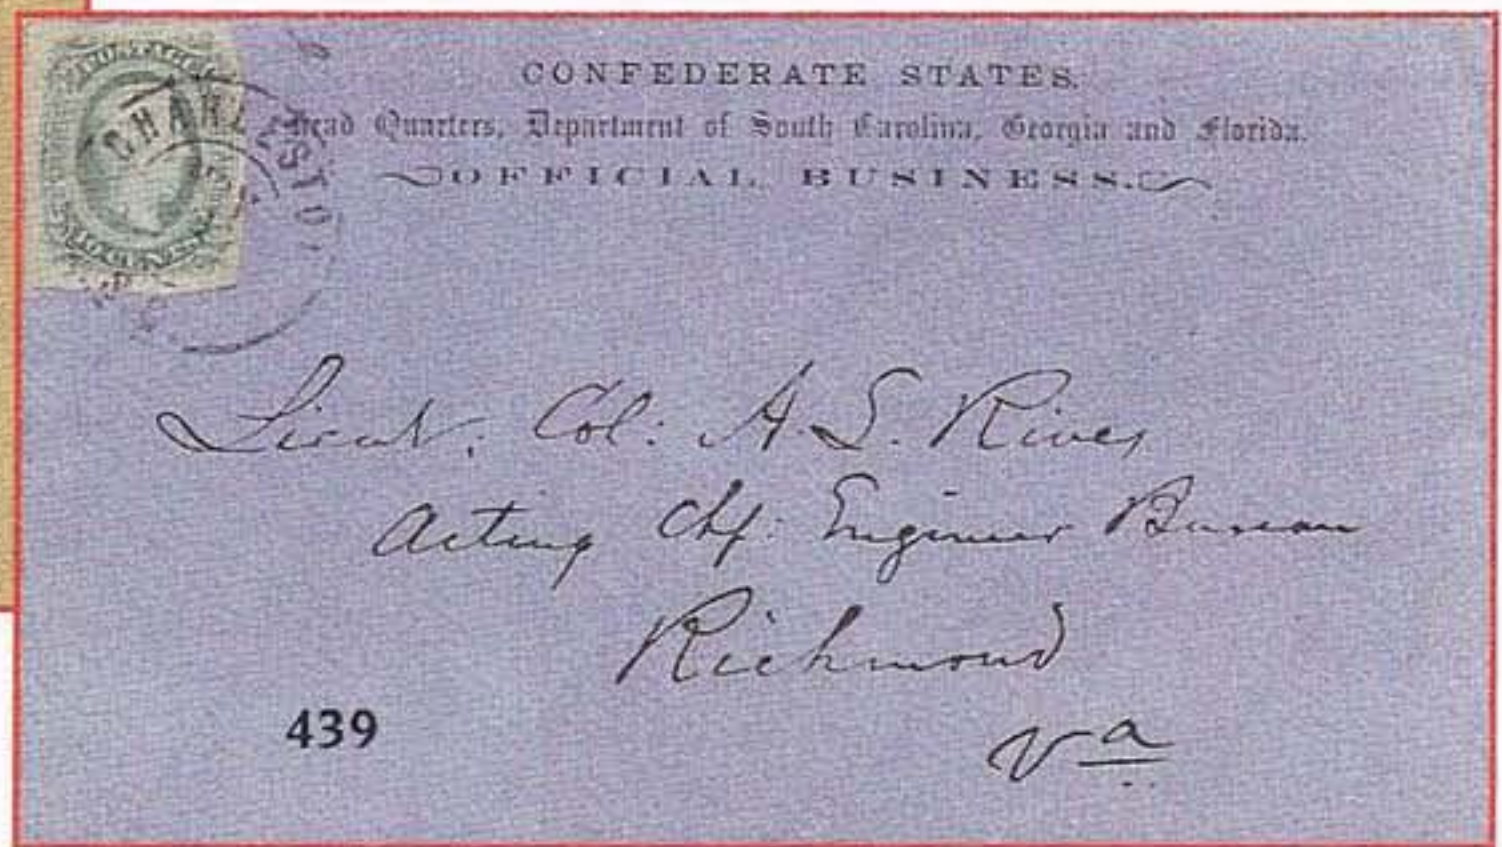 CONFEDERATE STATES.
Head Quarters, Department of South Carolina, Georgia and Florida.
OFFICIAL BUSINESS.
CHARLESTO
Lieut. Col: A. L. Rives
Acting Chf: Engineer Bureau
Richmond
Va
439